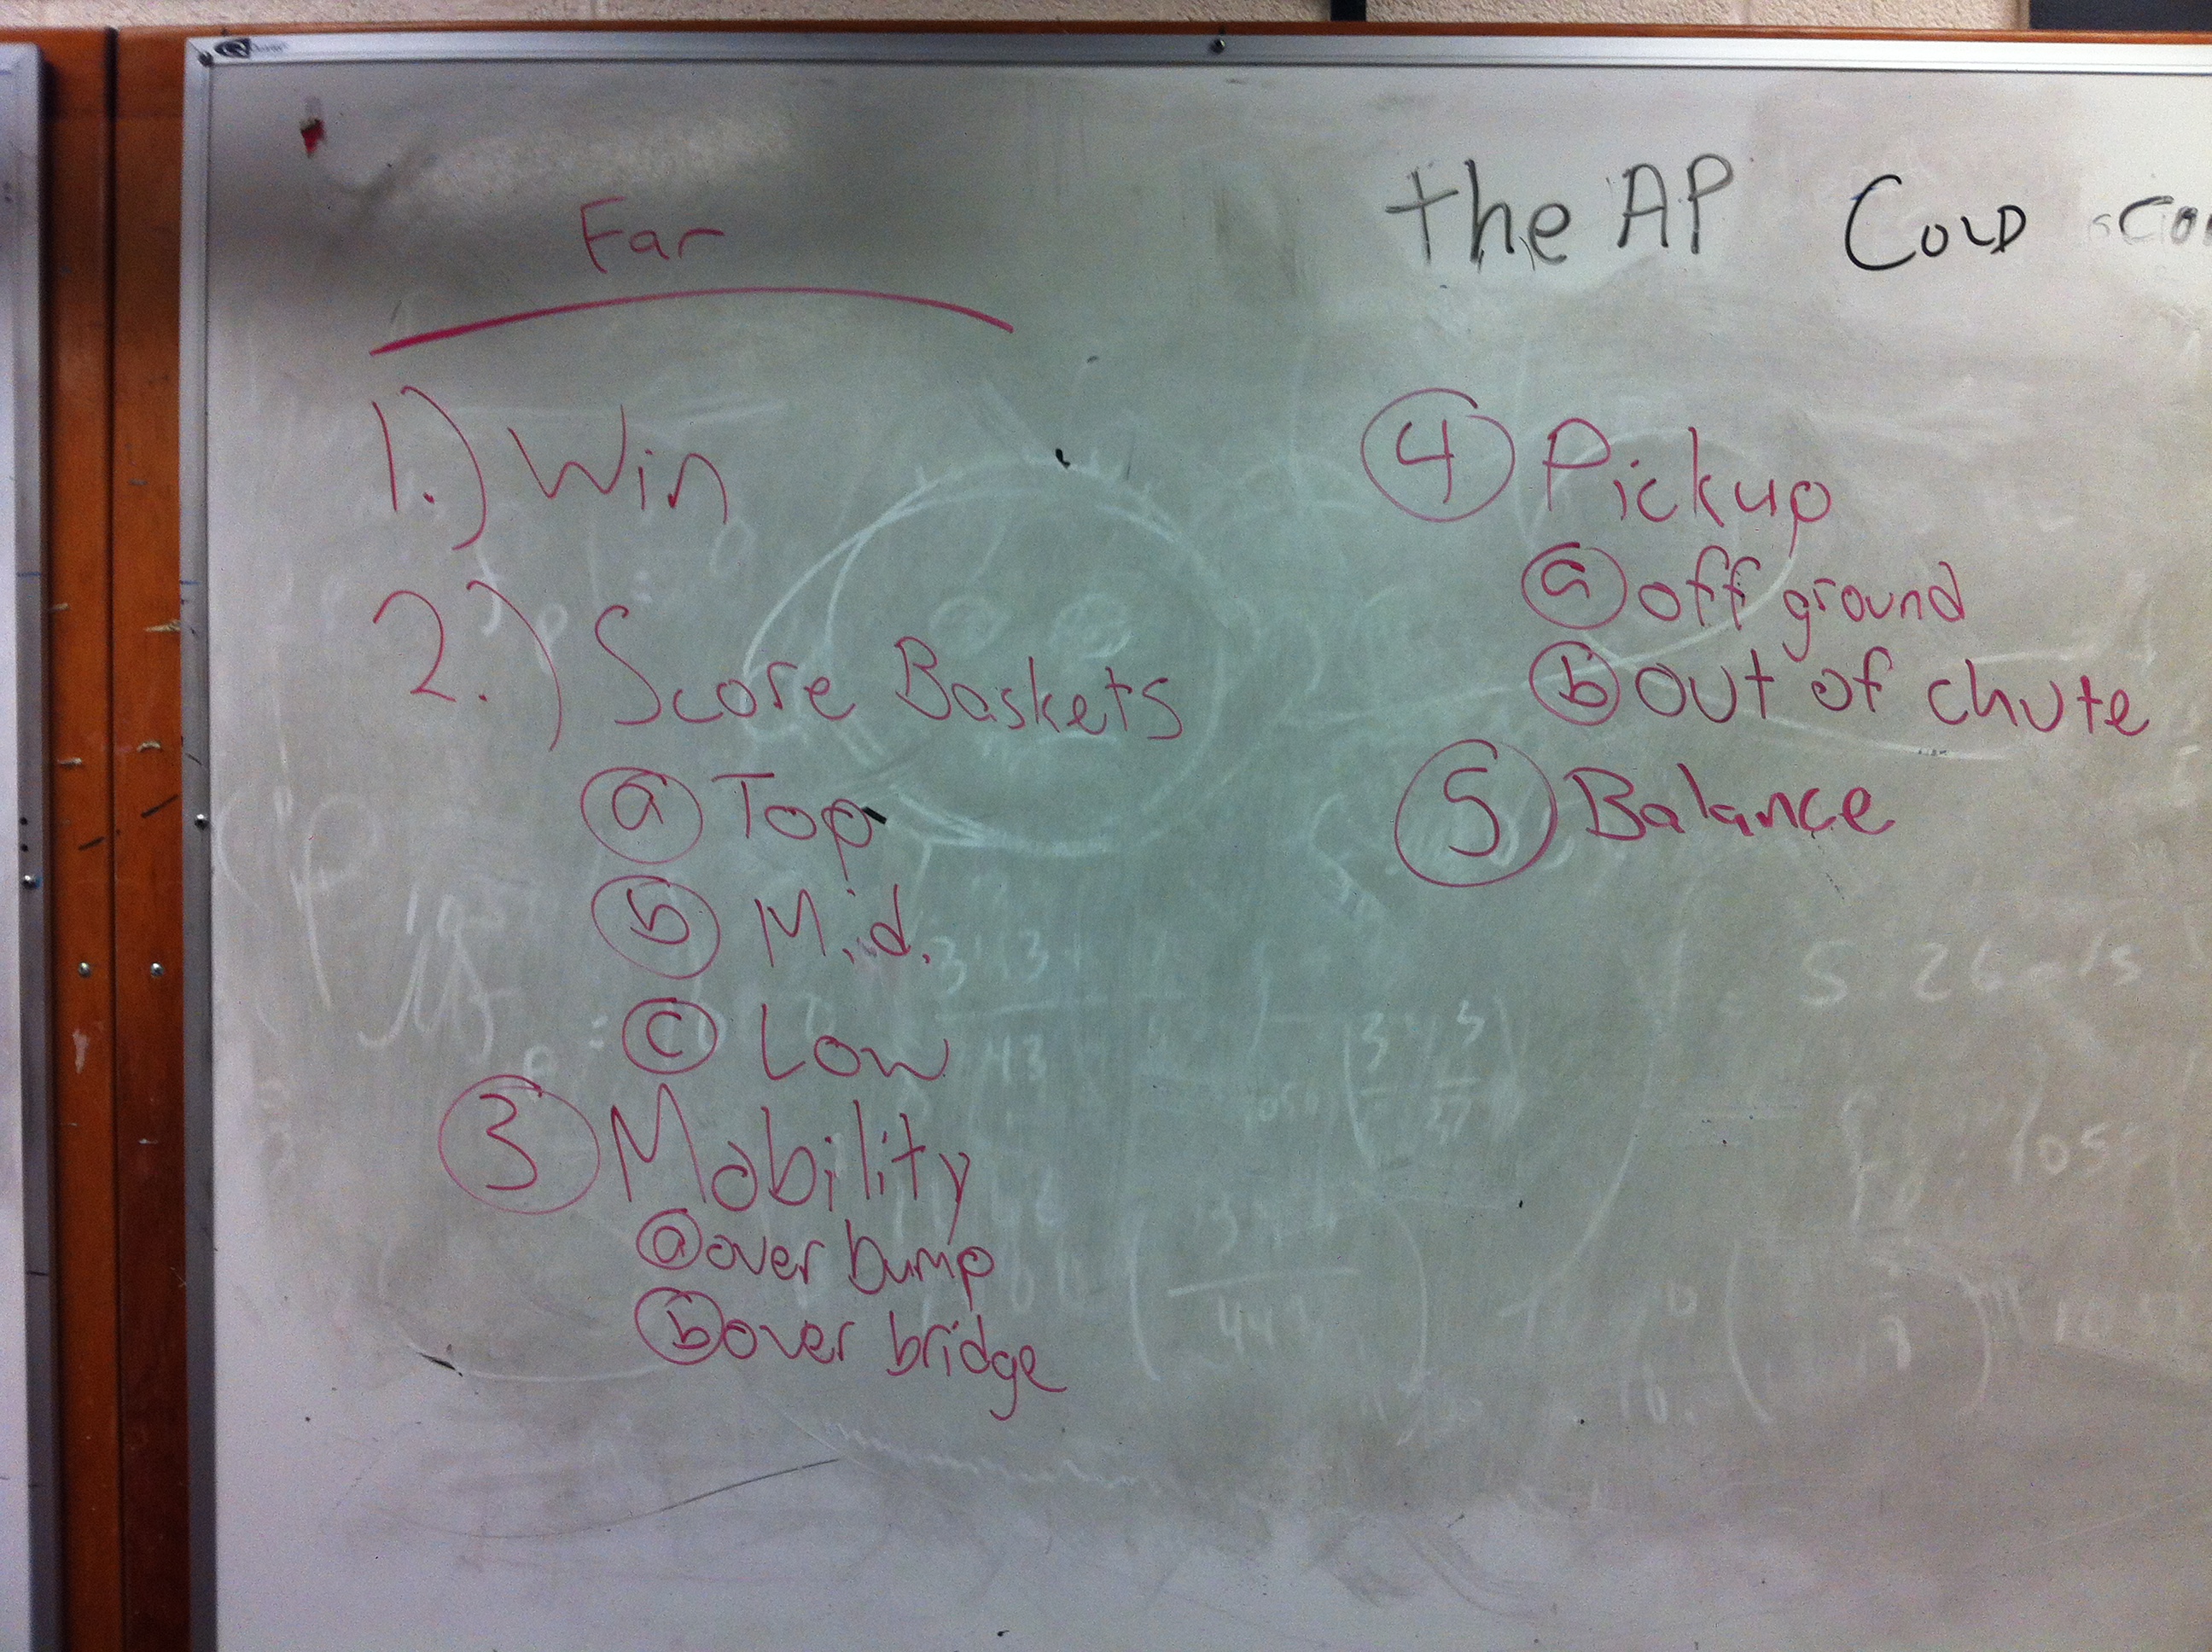 Far
the AP COLD
1.) Win
2.) Score Baskets
a Top
b Mid.
c Low
3 Mobility
a over bump
b over bridge
4 Pickup
a off ground
b out of chute
5 Balance